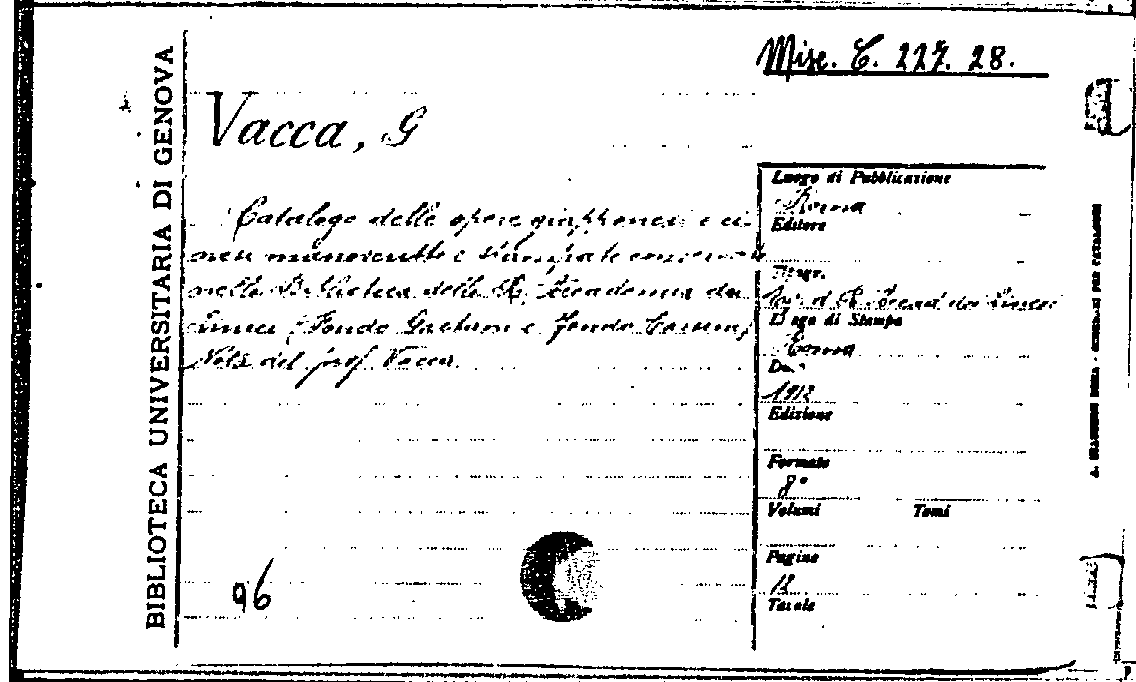 Misc. C. 227. 28.
BIBLIOTECA UNIVERSITARIA DI GENOVA
Vacca, G
Catalogo delle opere giapponesi e ci-
nesi manoscritte e stampate conservate
nella Biblioteca della R. Accademia dei
Lincei (Fondo Caetani e fondo Corsini)
Nota del prof Vacca.
96
Luogo di Pubblicazione
Roma
Editore
Tipogr.
R. Accad dei Lincei
Luogo di Stampa
Roma
Data
1912
Edizione
Formato
8°
Volumi Tomi
Pagine
Tavole